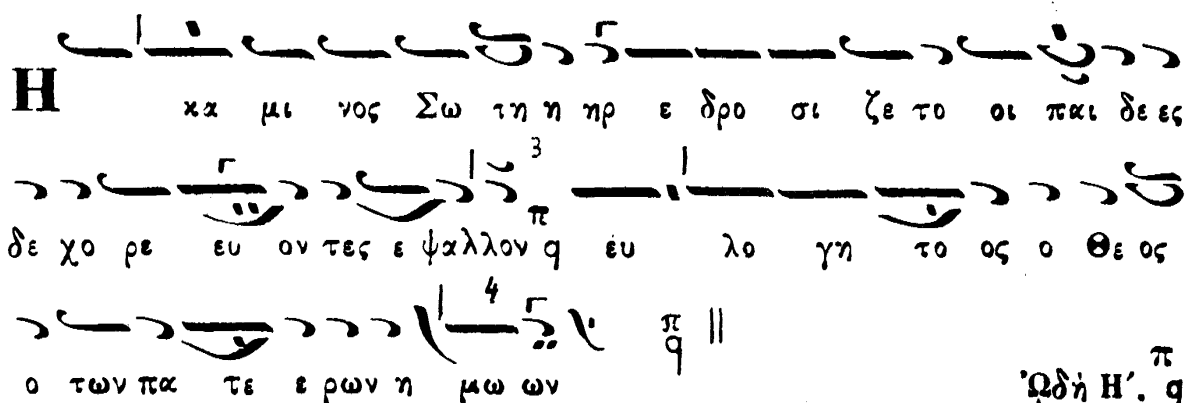 Η κα μι νος Σω τη η ηρ ε δρο σι ζε το οι παι δε ες
δε χο ρε ευ ον τες ε ψαλλον π q 3 έυ λο γη το ος ο Θε ος
ο των πα τε ε ρων η μω ων 4 π q
Ὠδή Η΄. π q